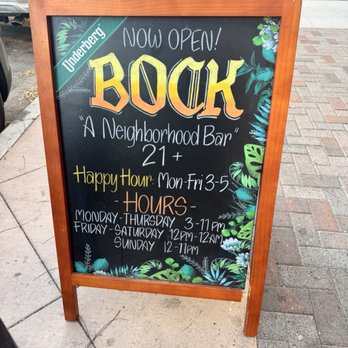 Underberg
NOW OPEN!
BOCK
"A NEIGHBORHOOD BAR"
21+
HAPPY HOUR: MON-FRI 3-5
- HOURS -
MONDAY-THURSDAY 3-11PM
FRIDAY-SATURDAY 12PM-12AM
SUNDAY 12-11PM